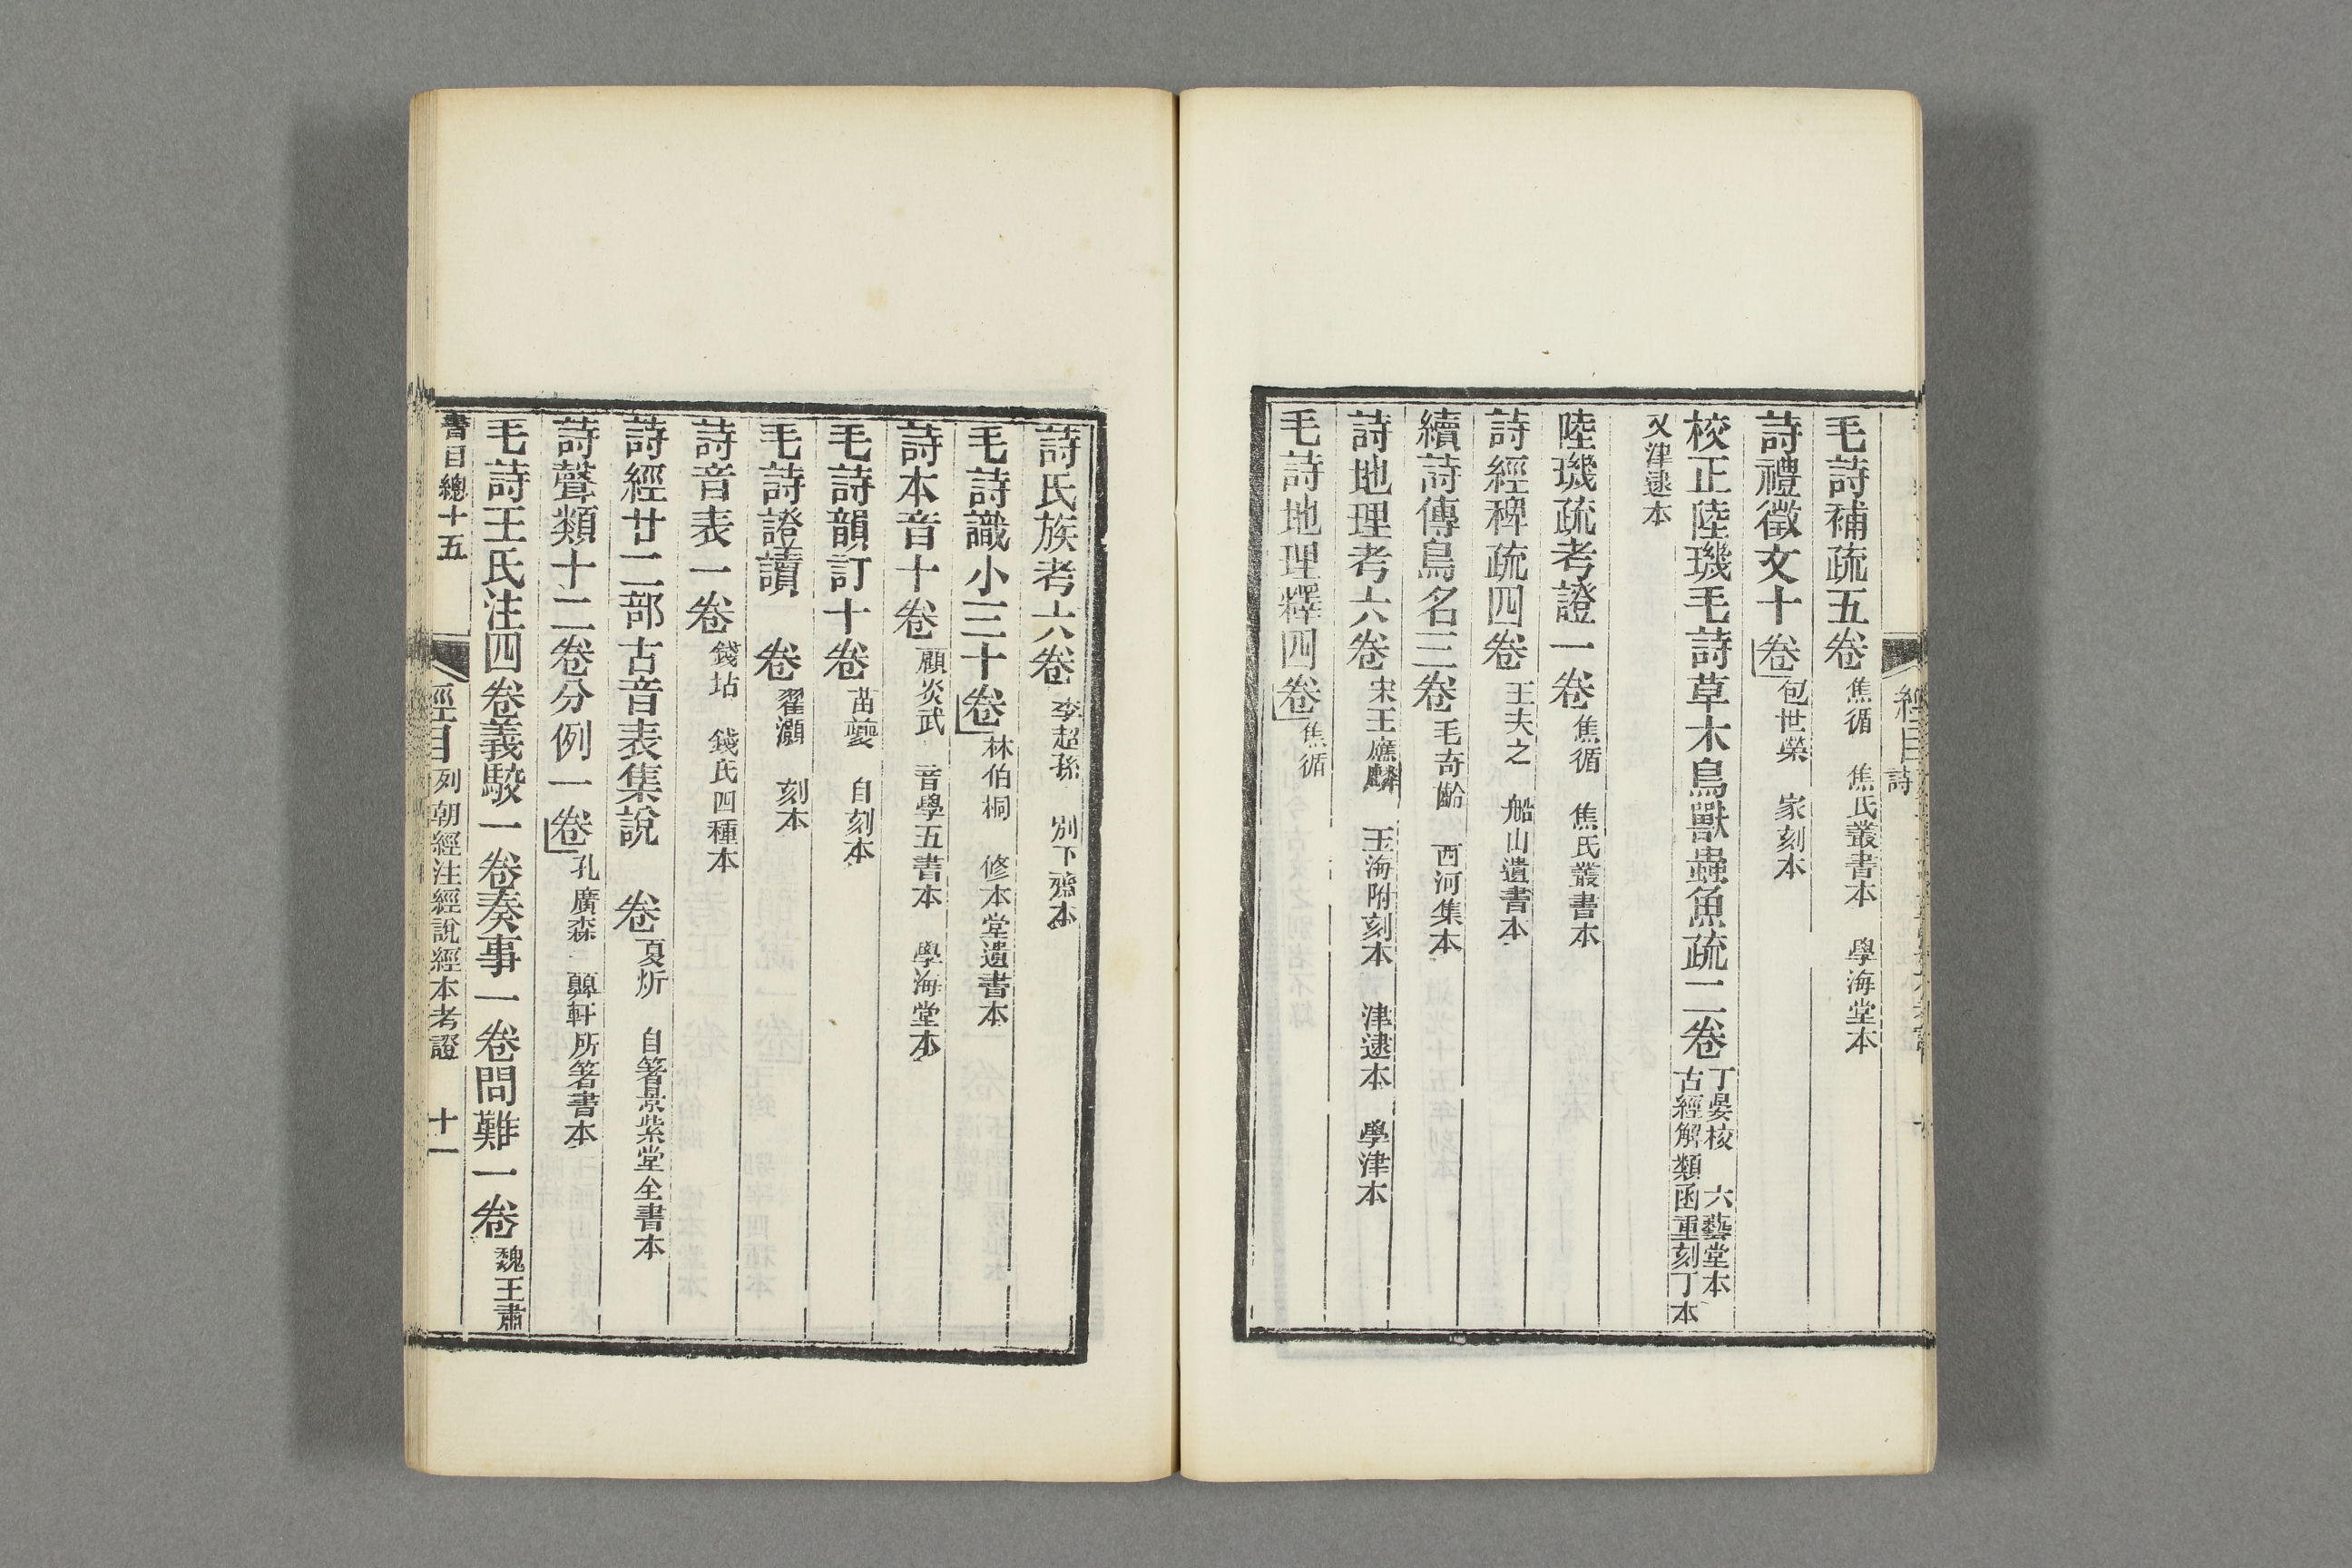 經目詩
毛詩補疏五卷 焦循 焦氏叢書本 學海堂本
詩禮徵文十卷 包世榮 家刻本
校正陸璣毛詩草木鳥獸蟲魚疏二卷 丁晏校 六藝堂本 古經解類函重刻丁本
又津逮本
陸璣疏考證一卷 焦循 焦氏叢書本
詩經稗疏四卷 王夫之 船山遺書本
續詩傳鳥名三卷 毛奇齡 西河集本
詩地理考六卷 宋王應麟 玉海附刻本 津逮本 學津本
毛詩地理釋四卷 焦循
詩氏族考六卷 李超孫 別下齋本
毛詩識小三十卷 林伯桐 修本堂遺書本
詩本音十卷 顧炎武 音學五書本 學海堂本
毛詩韻訂十卷 苗夔 自刻本
毛詩證讀 卷 翟灝 刻本
詩音表一卷 錢坫 錢氏四種本
詩經廿二部古音表集說 卷 夏炘 自箸景紫堂全書本
詩聲類十二卷分例一卷 孔廣森 顨軒所箸書本
毛詩王氏注四卷義駮一卷奏事一卷問難一卷 魏王肅
書目總十五 經目 列朝經注經說經本考證 十一